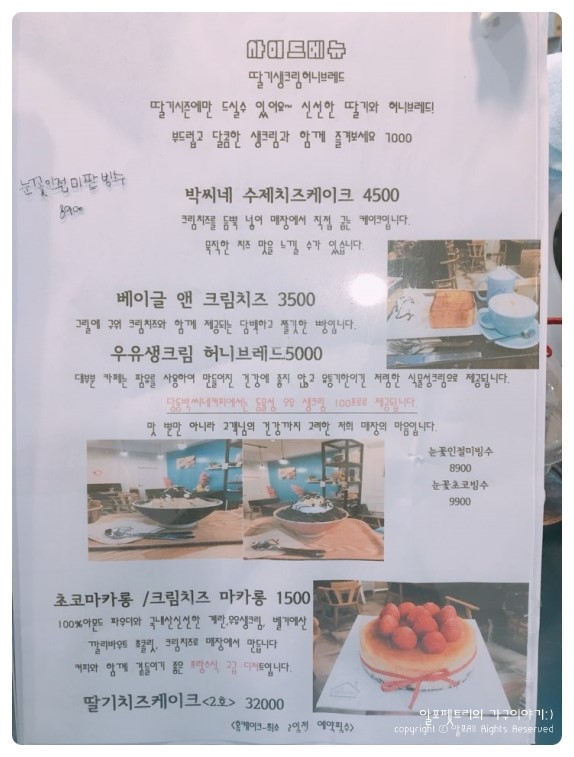 사이드메뉴
딸기생크림허니브레드
딸기시즌에만 드실수 있어요~ 신선한 딸기와 허니브레드!
부드럽고 달콤한 생크림과 함께 즐겨보세요 7000
눈꽃인절미판빙수
8900
박씨네 수제치즈케이크 4500
크림치즈를 듬뿍 넣어 매장에서 직접 굽는 케이크입니다.
묵직한 치즈 맛을 느끼실 수가 있습니다.
베이글 앤 크림치즈 3500
그릴에 구워 크림치즈와 함께 제공되는 담백하고 쫄깃한 빵입니다.
우유생크림 허니브레드5000
대부분 카페는 팜유를 사용하여 만들어진 건강에 좋지 않고 유통기한이긴 저렴한 식물성크림으로 제공됩니다.
동물성 우유 생크림 100프로로 제공됩니다.
맛 뿐만 아니라 고객님의 건강까지 고려한 저희 매장의 마음입니다.
눈꽃인절미빙수
8900
눈꽃초코빙수
9900
초코마카롱 /크림치즈 마카롱 1500
100%아몬드 파우더와 국내산신선한 계란,우유생크림, 벨기에산
깔리바우트 초콜릿, 크림치즈로 매장에서 만듭니다
커피와 함께 곁들이기 좋은 프랑스식 고급 디저트입니다.
딸기치즈케이크<2호> 32000
<홀케이크-최소 2일전 예약필수>
알포펫트리의 가구이야기:)
copyright ⓒ All Rights Reserved